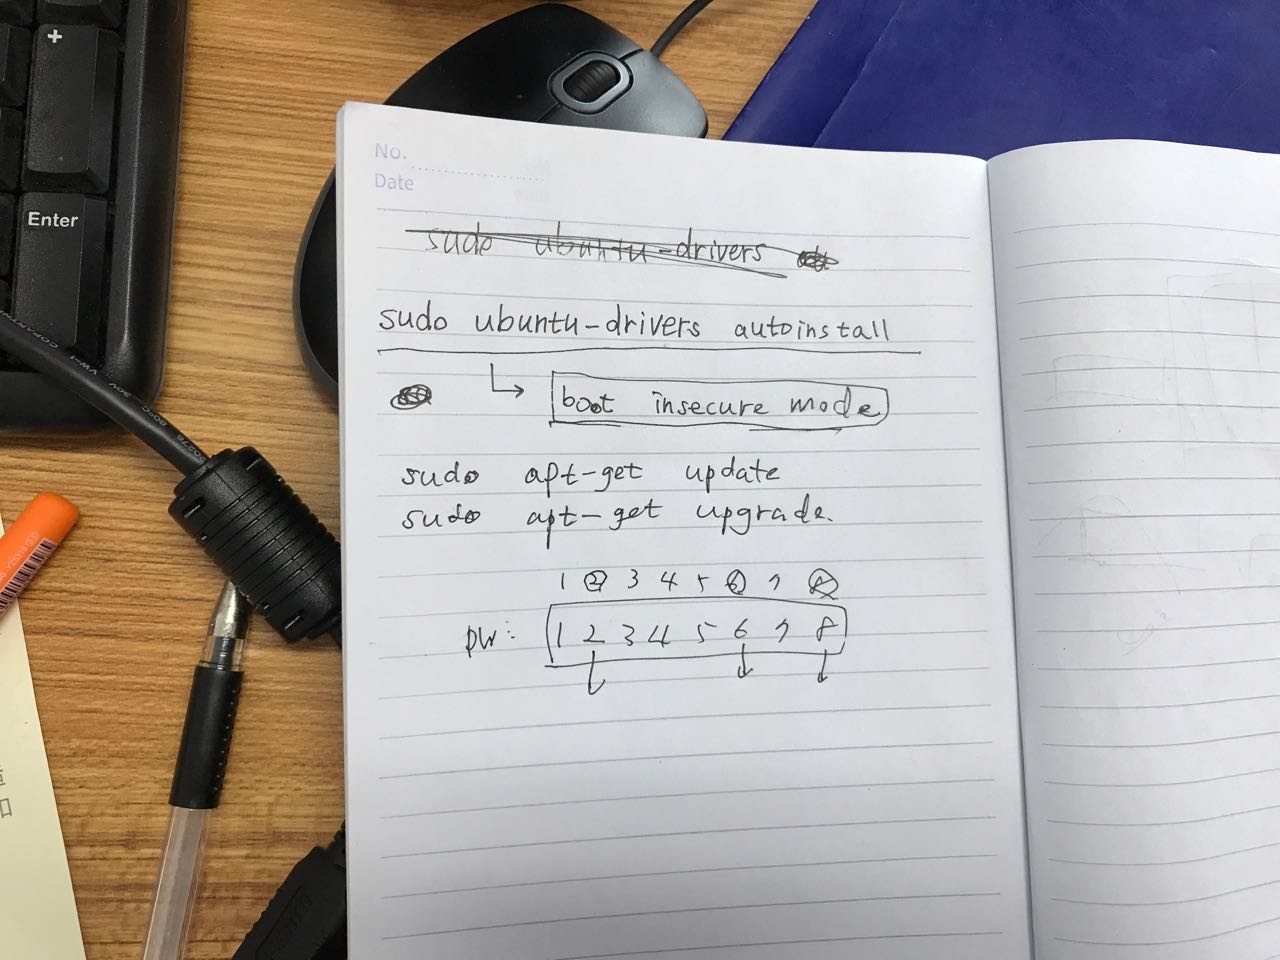 +
Enter
No.
Date
sudo ubuntu-drivers
sudo ubuntu-drivers autoinstall
boot insecure mode
sudo apt-get update
sudo apt-get upgrade.
1 2 3 4 5 6 7 8
pw: 1 2 3 4 5 6 7 8